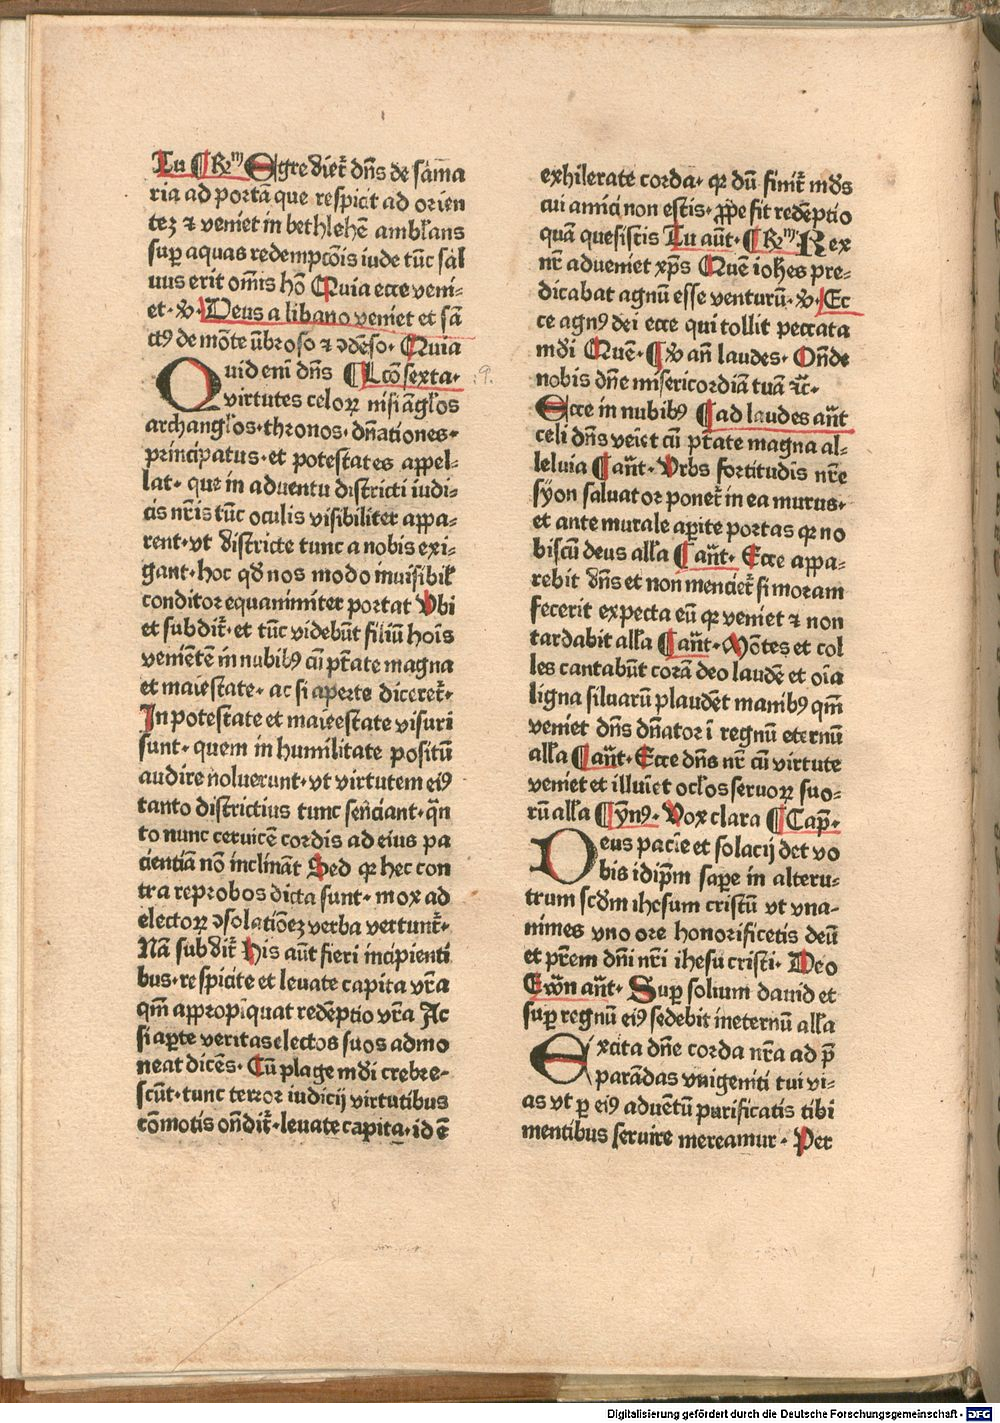 Tu ¶ R̄m Egredieť dn̄s de sām̄a
ria ad portā que respicit ad orien
tez ⁊ veniet in bethlehē ambl̄ans
suꝑ aquas redempcōis iude tūc sal
uus erit om̄is hō Quia ecce veni⸗
et · v̄ · Deus a libano veniet et sā
ctꝰ de mōte ūbroso ⁊ ꝯdēso · Quia
Quid eni dn̄s ¶ Lcō sexta ·
virtutes celoꝝ nisi āgl̄os
archangl̄os · thronos · dn̄ationes ·
principatus · et potestates appel⸗
lat · que in aduentu districti iudi⸗
cis nr̄is tūc oculis visibiliter appa⸗
rent · vt districte tunc a nobis exi⸗
gant · hoc qd̄ nos modo inuisibil̄
conditor equanimiter portat Vbi
et subdiť · et tūc videbūt filiū hoīs
veniētē in nubibꝰ cū ptāte magna
et maiestate · ac si aperte diceret̄ ·
In potestate et maieestate visuri
sunt · quem in humilitate positū
audire noluerunt · vt virtutem eiꝰ
tanto districtius tunc senciant · qn̄
to nunc ceruicē cordis ad eius pa
cientiā nō inclināt Sed ꝙ hec con
tra reprobos dicta sunt · mox ad
electoꝝ ꝯsolatiōez verba vertunt̄ ·
Nā subdiť His aūt fieri incipienti
bus · respicite et leuate capita vr̄a
qm̄ appropiquat redēptio vr̄a Ac
si aꝑte veritas electos suos admo
neat dicēs · Cū plage mūdi crebre⸗
scūt · tunc terror iudicij virtutibus
cōmotis on̄diť · leuate capita · id ē
exhilerate corda · ꝙ dū finiť mūdꝰ
cui amici non estis · ꝓpe fit redēptio
quā quesistis Tu aūt · ¶ R̄m Rex
nr̄ adueniet xp̄s Quē ioh̄es pre⸗
dicabat agnū esse venturū · v̄ · Ec
ce agnꝰ dei ecce qui tollit peccata
mūdi Quē · ¶ v̄ an̄ laudes · Onde
nobis dn̄e misericordiā tuā ⁊c̄ ·
Ecce in nubibꝰ ¶ ad laudes an̄t
celi dn̄s veiēt cū ptāte magna al⸗
leluia ¶ an̄t · Vrbs fortitudis nr̄e
syon saluator poneť in ea murus ·
et ante murale aꝑite portas ꝙ no
biscū deus all̄a ¶ an̄t · Ecce appa⸗
rebit dn̄s et non mencieť si moram
fecerit expecta eū ꝙ veniet ⁊ non
tardabit all̄a ¶ an̄t · Mōtes et col
les cantabūt corā deo laudē et oīa
ligna siluarū plaudēt manibꝰ qm̄
veniet dn̄s dn̄ator ī regnū eternū
all̄a ¶ an̄t · Ecce dn̄s nr̄ cū virtute
veniet et illuīet ocl̄os seruoꝝ suo⸗
rū all̄a ¶ ymꝰ · Vox clara ¶ Cap̄ ·
Deus pacīe et solacij det vo
bis idip̄m saꝑe in alteru⸗
trum scd̄m ihesum cristū vt vna⸗
nimes vno ore honorificetis deū
et prēm dn̄i nr̄i ihesu cristi · Deo
Ewn̄ an̄t · Suꝑ solium dauid et
suꝑ regnū eiꝰ sedebit ineternū all̄a
Excita dn̄e corda nr̄a ad p̄
parādas vnigeniti tui vi⸗
as vt ꝑ eiꝰ aduētū purificatis tibi
mentibus seruire mereamur · Per
Digitalisierung gefördert durch die Deutsche Forschungsgemeinschaft - DFG